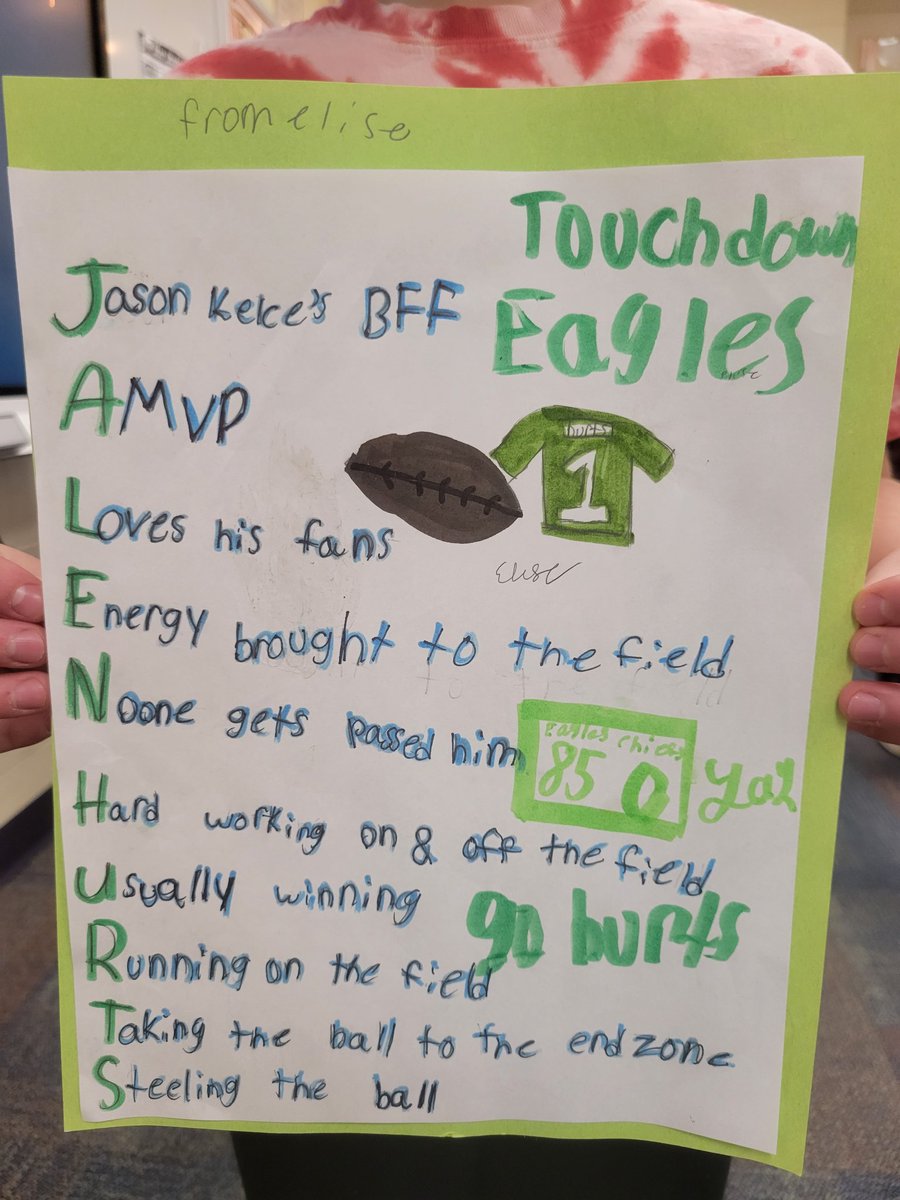 from elise
Touchdown
Eagles
elise
Jason kelce's BFF
A MVP
hurts
1
Loves his fans
Elise
Energy brought to the field
Noone gets passed him
eagles chiefs
85 0
Yay
Hard working on & off the field
Usually winning
go hurts
Running on the field
Taking the ball to the endzone
Steeling the ball